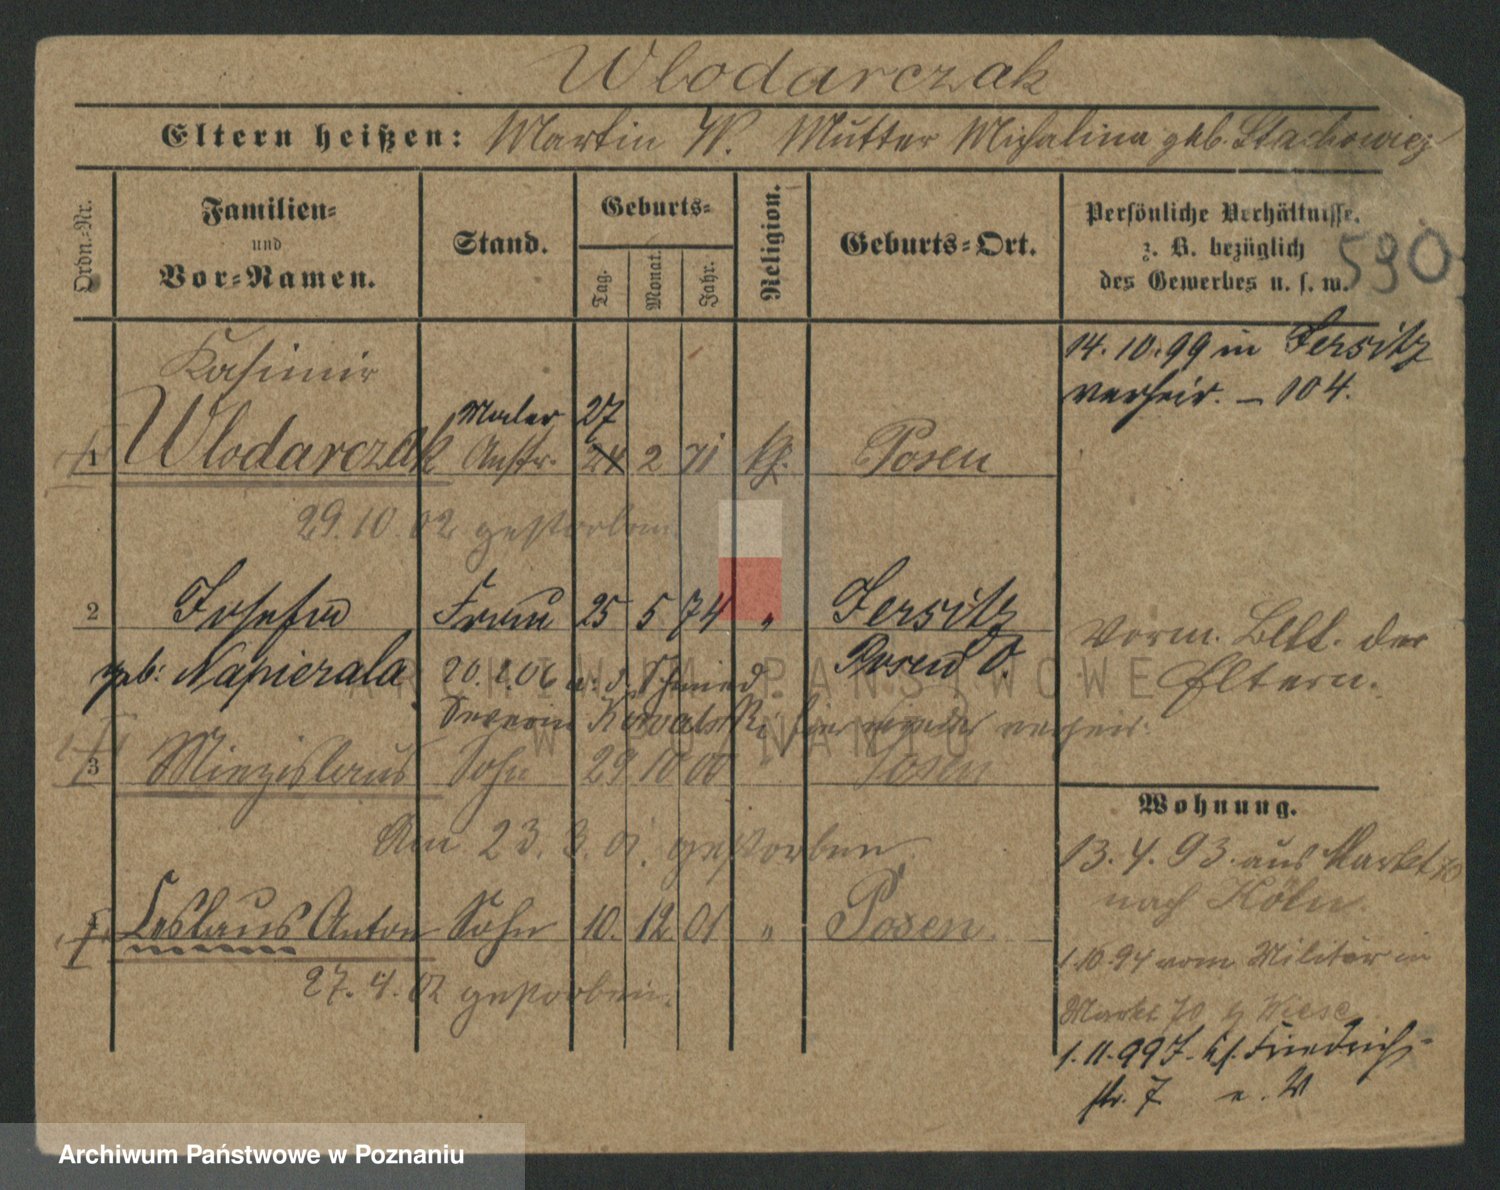 Wlodarczak
Eltern heißen: Martin W. Mutter Michalina geb. Stachowicz
Ordn.-Nr.
Familien-
und
Vor-Namen.
Stand.
Geburts-
Tag.
Monat.
Jahr.
Religion.
Geburts-Ort.
Persönliche Verhältnisse.
z. B. bezüglich
des Gewerbes u. s. w.
590
14. 10. 99 in Jersitz
verheir. – 104.
Kasimir
Maler 27
1 Wlodarczak Anstr. 24 2 71 kth. Posen
29. 10. 02 gestorben.
2 Josefa Frau 25 5 74 " Jersitz
geb: Napierala Posen O.
20. 2. 06 m. d. Schmied.
Severin Kowalski hier wieder verheir.
Vorm. Bltt. der
Eltern.
3 Miezislaus Sohn 29 10 00 " Posen
Am 23. 3. 01. gestorben
4 Leslaus Anton Sohn 10. 12 01 " Posen.
27. 4. 02 gestorben.
Wohnung.
13. 4. 93. aus Markt 70
nach Köln.
1. 10 94 vom Militär in
Markt 70 b/ Wiese
1. 11. 99 J. Kl. Friedrich-
str. 7
ARCHIWUM PAŃSTWOWE
W POZNANIU
Archiwum Państwowe w Poznaniu